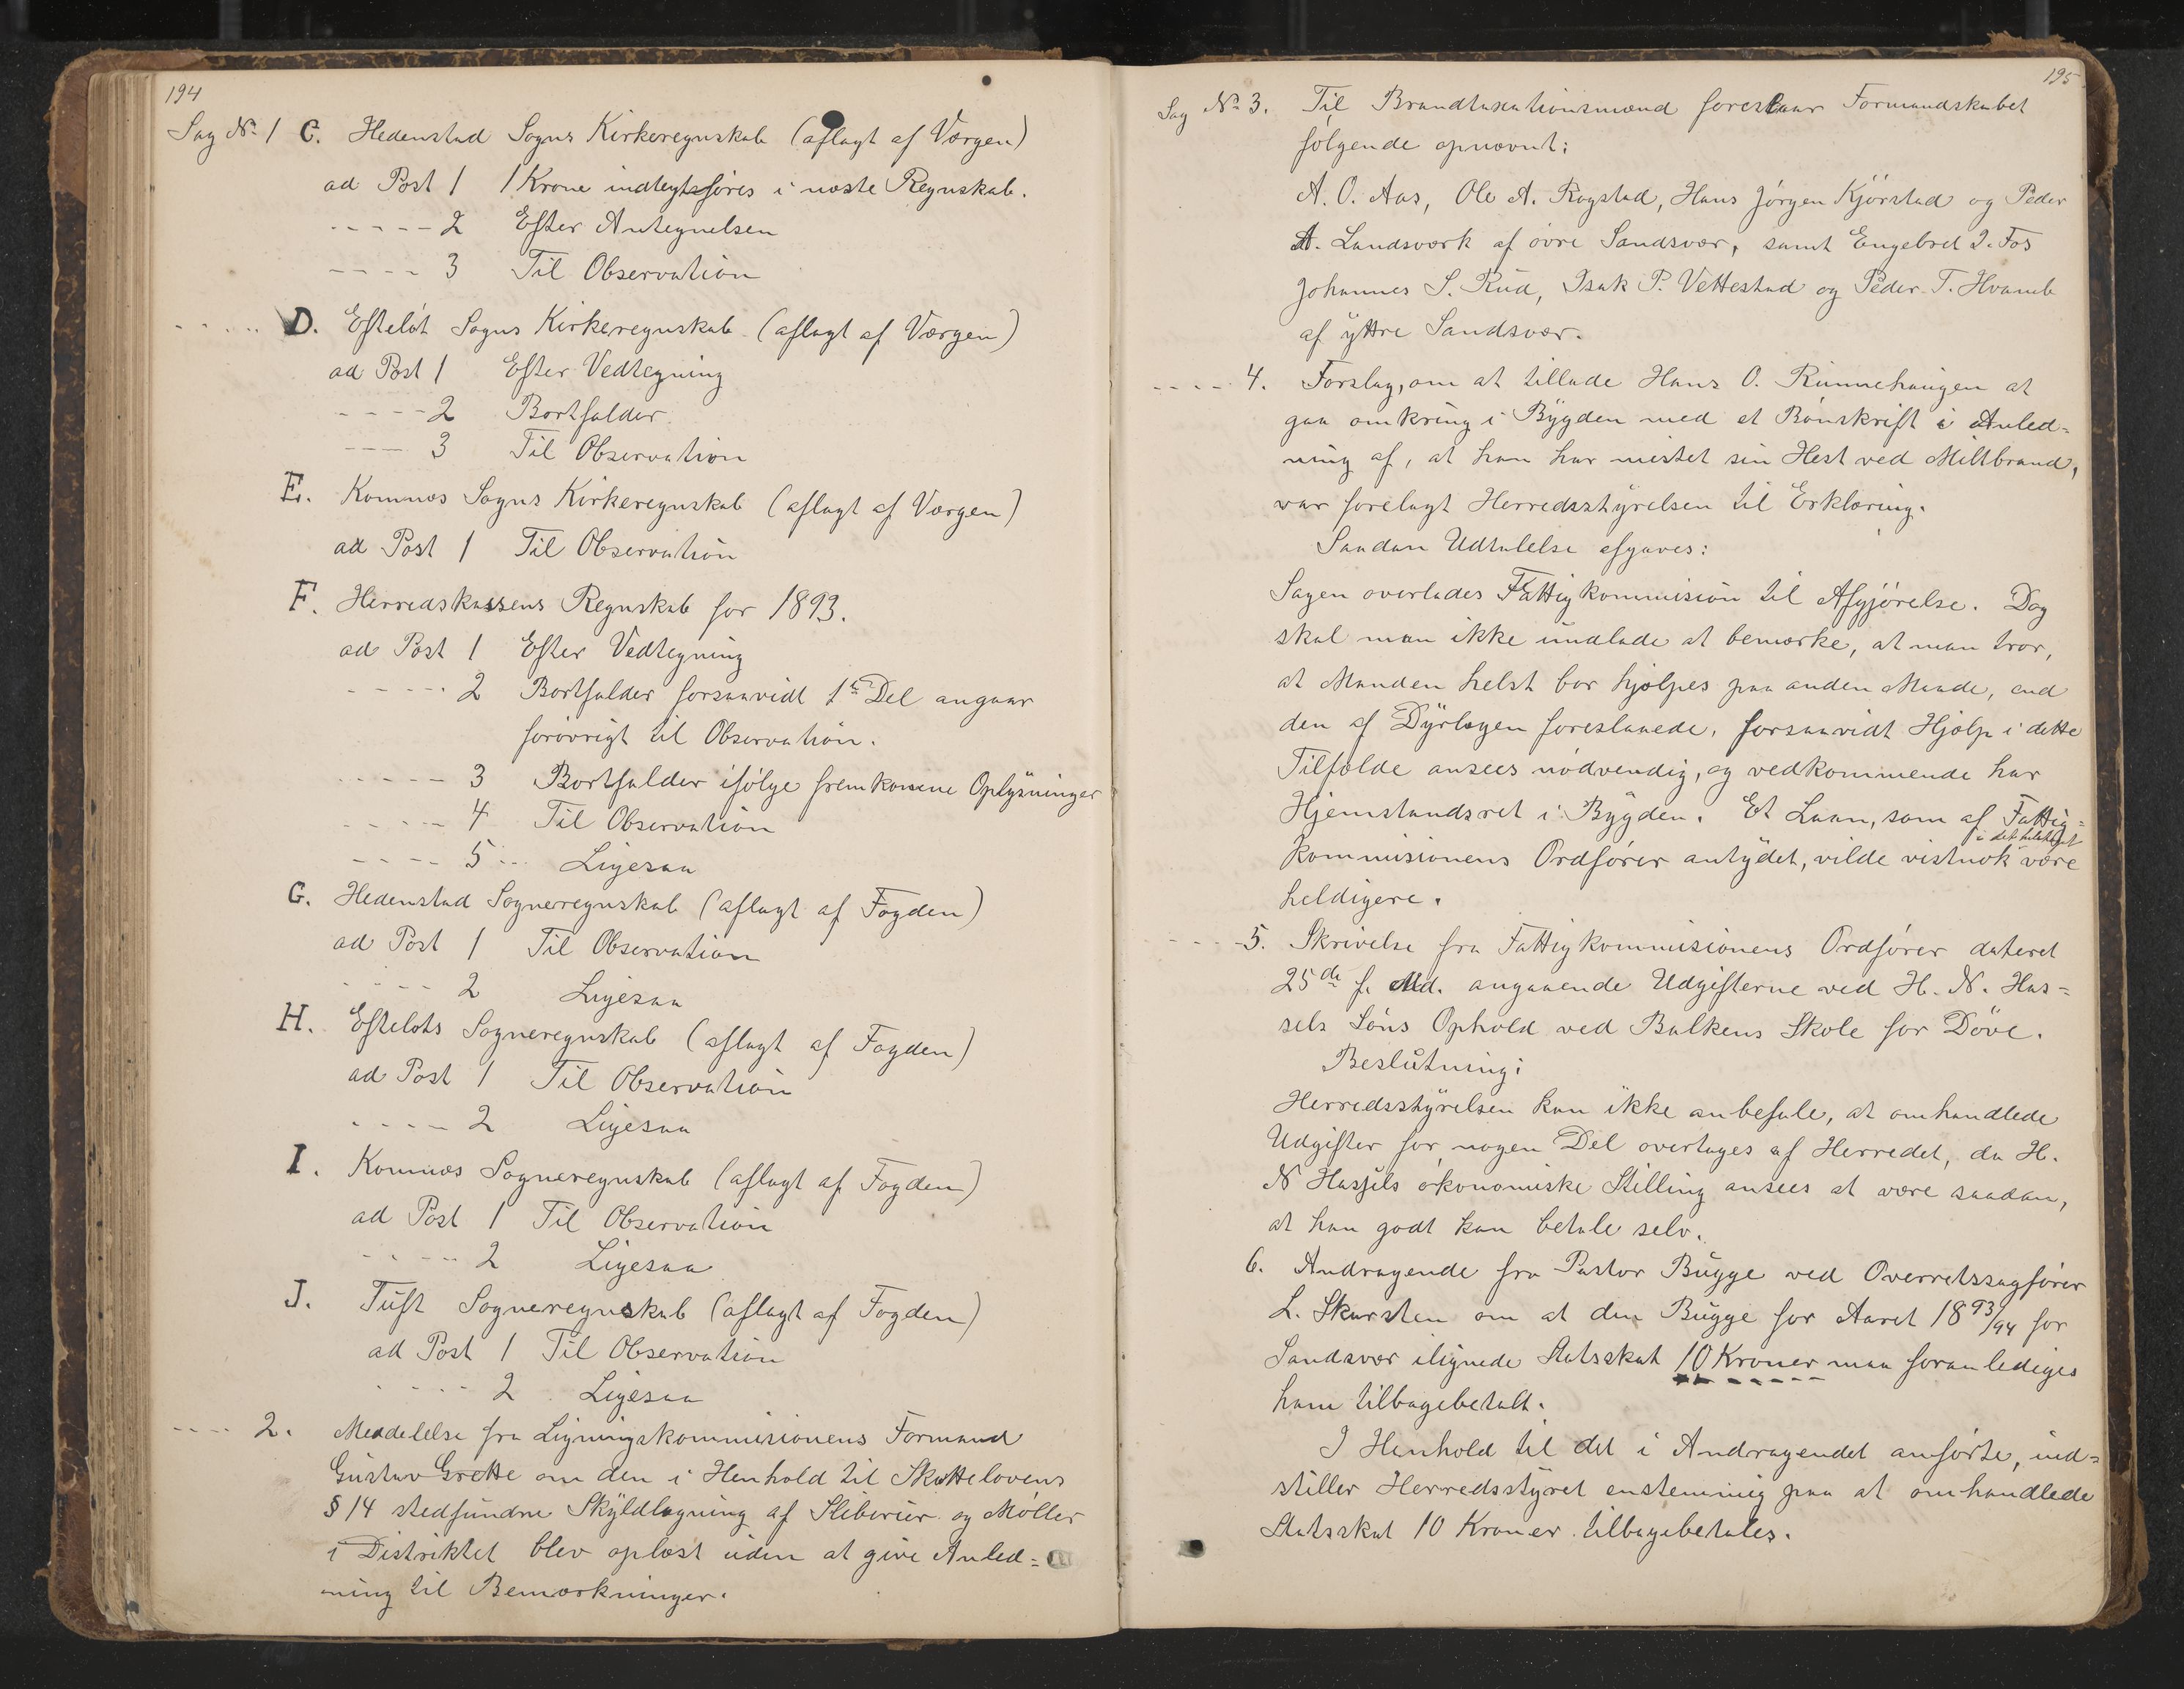 194
Sag No 1 C. Hedenstad Sogns Kirkeregnskab (aflagt af Værgen)
ad Post 1 1 Krone indtegtsføres i næste Regnskab.
- - - - - 2 Efter Antegnelsen
- - - - 3 Til Observation
- - - - - D. Efteløt Sogns Kirkeregnskab (aflagt af Værgen)
ad Post 1 Efter Vedtegning
- - - - 2 Bortfalder
- - - 3 Til Observation
E. Komnæs Sogns Kirkeregnskab (aflagt af Værgen)
ad Post 1 Til Observation
F. Herredskassens Regnskab for 1893.
ad Post 1 Efter Vedtegning
- - - - - 2 Bortfalder forsaavidt 1ste Del angaar
forøvrigt til Observation.
- - - - - 3 Bortfalder ifølge fremkomne Oplysninger
- - - - - 4 Til Observation
- - - - 5 - - Ligesaa
G. Hedenstad Sogneregnskab (aflagt af Fogden)
ad Post 1 Til Observation
- - - - 2 Ligesaa
H. Efteløts Sogneregnskab (aflagt af Fogden)
ad Post 1 Til Observation
- - - - 2 Ligesaa
I. Komnæs Sogneregnskab (aflagt af Fogden)
ad Post 1 Til Observation
- - - - - 2 Ligesaa
J. Tuft Sogneregnskab (aflagt af Fogden)
ad Post 1 Til Observation
- - - - 2 Ligesaa
- - - - 2. Meddelelse fra Ligningskommisionens Formand
Gustav Grette om den i Henhold til Skattelovens
§ 14 stedfundne Skyldlægning af Sliberier og Møller
i Distriktet blev oplæst uden at give Anled=
ning til Bemærkninger.
195
Sag No 3. Til Brandtaxationsmænd foreslaar Formandskabet
følgende opnævnt:
A. O. Aas, Ole A. Rogstad, Hans Jørgen Kjørstad og Peder
A. Landsværk af øvre Sandsvær, samt Engebret I. Fos
Johannes S. Rud, Isak P. Vettestad og Peder T. Hvamb
af yttre Sandsvær.
- - - - 4. Forslag, om at tillade Hans O. Rumnehaugen at
gaa omkring i Bygden med et Bønskrift i Anled=
ning af, at han har mistet sin Hest ved Miltbrand,
var forelagt Herredsstyrelsen til Erklæring.
Saadan Udtalelse afgaves:
Sagen overlades Fattigkommision til Afgjørelse. Dog
skal man ikke undlade at bemærke, at man tror,
at Manden helst bør hjælpes paa anden Maade, end
den af Dyrlægen foreslaaede, forsaavidt Hjælp i dette
Tilfælde ansees nødvendig, og vedkommende har
Hjemstandsret i Bygden. Et Laan, som af Fattig=
i det heletaget
kommisionens Ordfører antydet, vilde vistnok være
heldigere.
- - - - 5. Skrivelse fra Fattigkommisionens Ordfører dateret
25de f. Md. angaaende Udgifterne ved H. N. Has=
sels Søns Ophold ved Balkens Skole for Døve.
Beslutning:
Herredsstyrelsen kan ikke anbefale, at omhandlede
Udgifter for nogen Del overtages af Herredet, da H.
N Hassels økonomiske Stilling ansees at være saadan,
at han godt kan betale selv.
6. Andragende fra Pastor Bugge ved Overretssagfører
L. Skarsten om at den Bugge for Aaret 1893/94 for
Sandsvær ilignede Statsskat 10 Kroner maa foranlediges
ham tilbagebetalt.
I Henhold til det i Andragendet anførte, ind=
stiller Herredsstyret enstemmig paa at omhandlede
Statsskat 10 Kroner tilbagebetales.